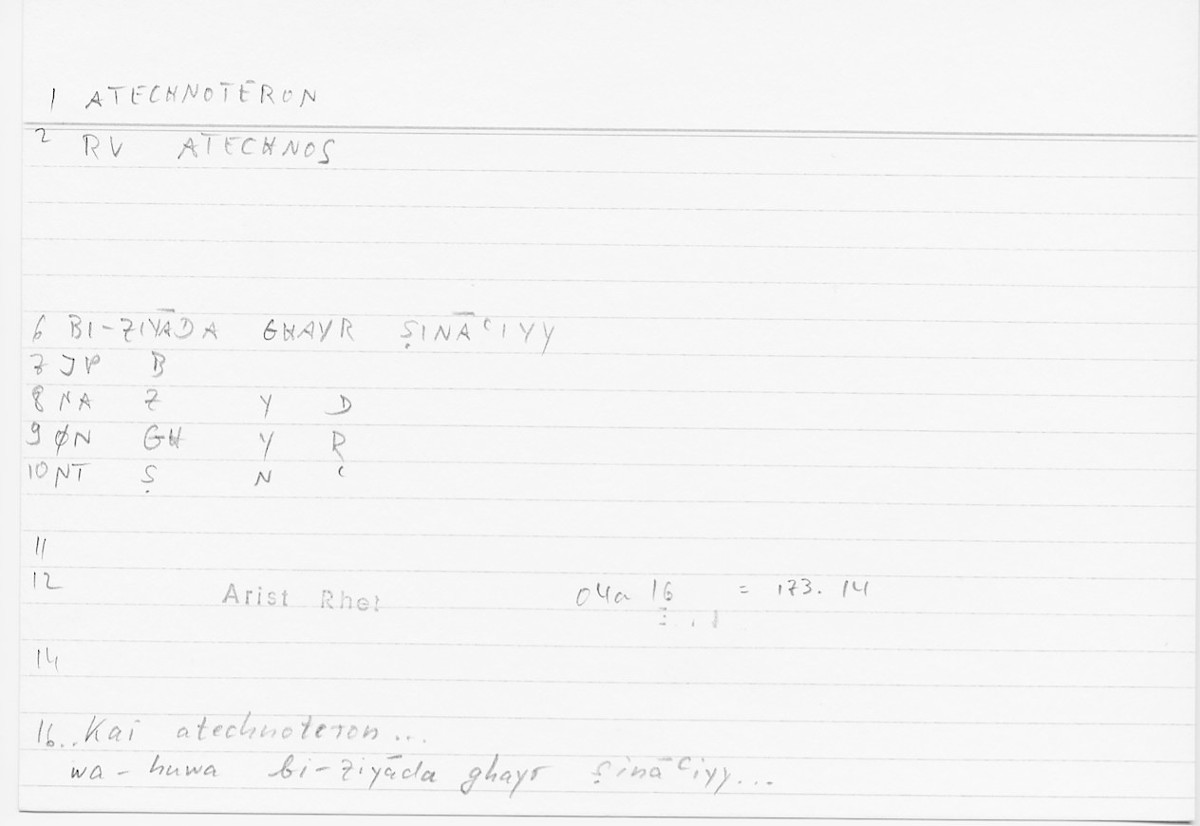 1 ATECHNOTERON
2 RV ATECHNOS
6 BI-ZIYĀDA GHAYR ṢINĀʿIYY
7 JP B
8 NA Z Y D
9 ØN GH Y R
10 NT Ṣ N ʿ
11
12 Arist Rhet 04a 16 = 173. 14
14
16.. Kai atechnoteron...
wa-huwa bi-ziyāda ghayr ṣināʿiyy...